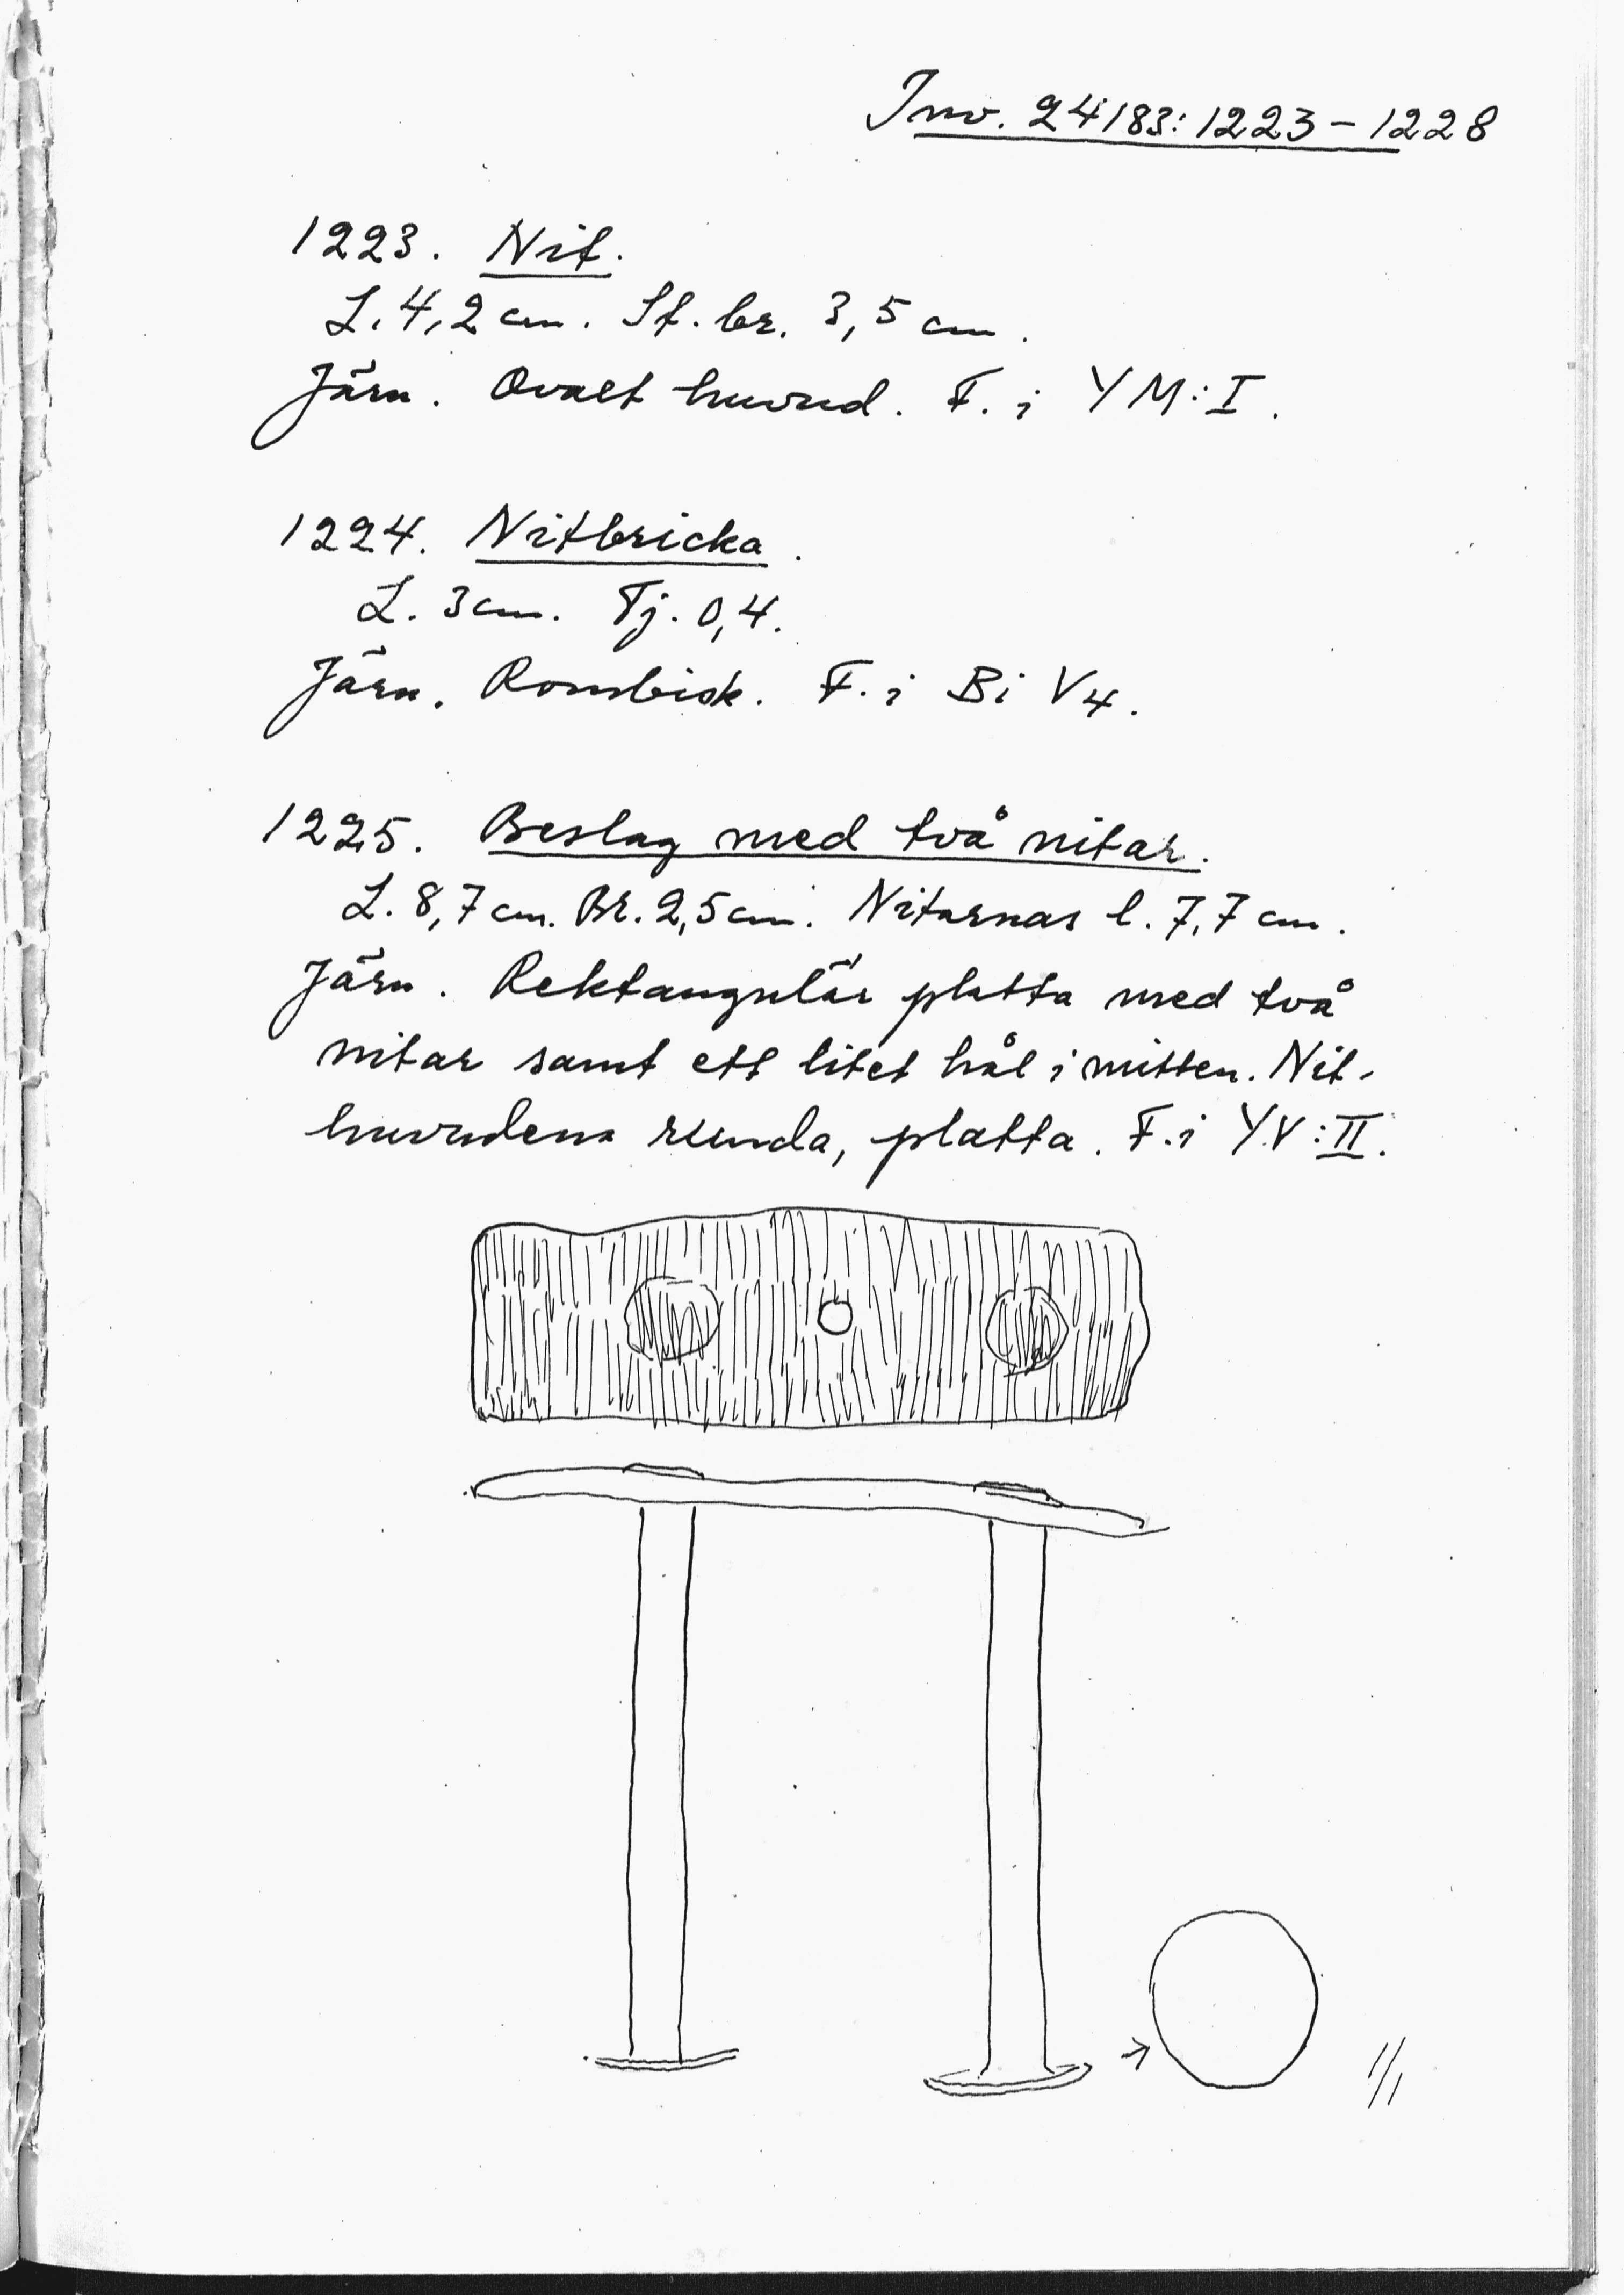 Inv. 24183:1223-1228
1223. Nit.
L. 4,2 cm. St. br. 3,5 cm.
Järn. Ovalt huvud. F. i YM:I.
1224. Nitbricka.
L. 3 cm. Tj. 0,4.
Järn. Rombisk. F. i Bi V4.
1225. Beslag med två nitar.
L. 8,7 cm. Br. 2,5 cm. Nitarnas l. 7,7 cm.
Järn. Rektangulär platta med två
nitar samt ett litet hål i mitten. Nit-
huvudena runda, platta. F. i YV:II.
1/1